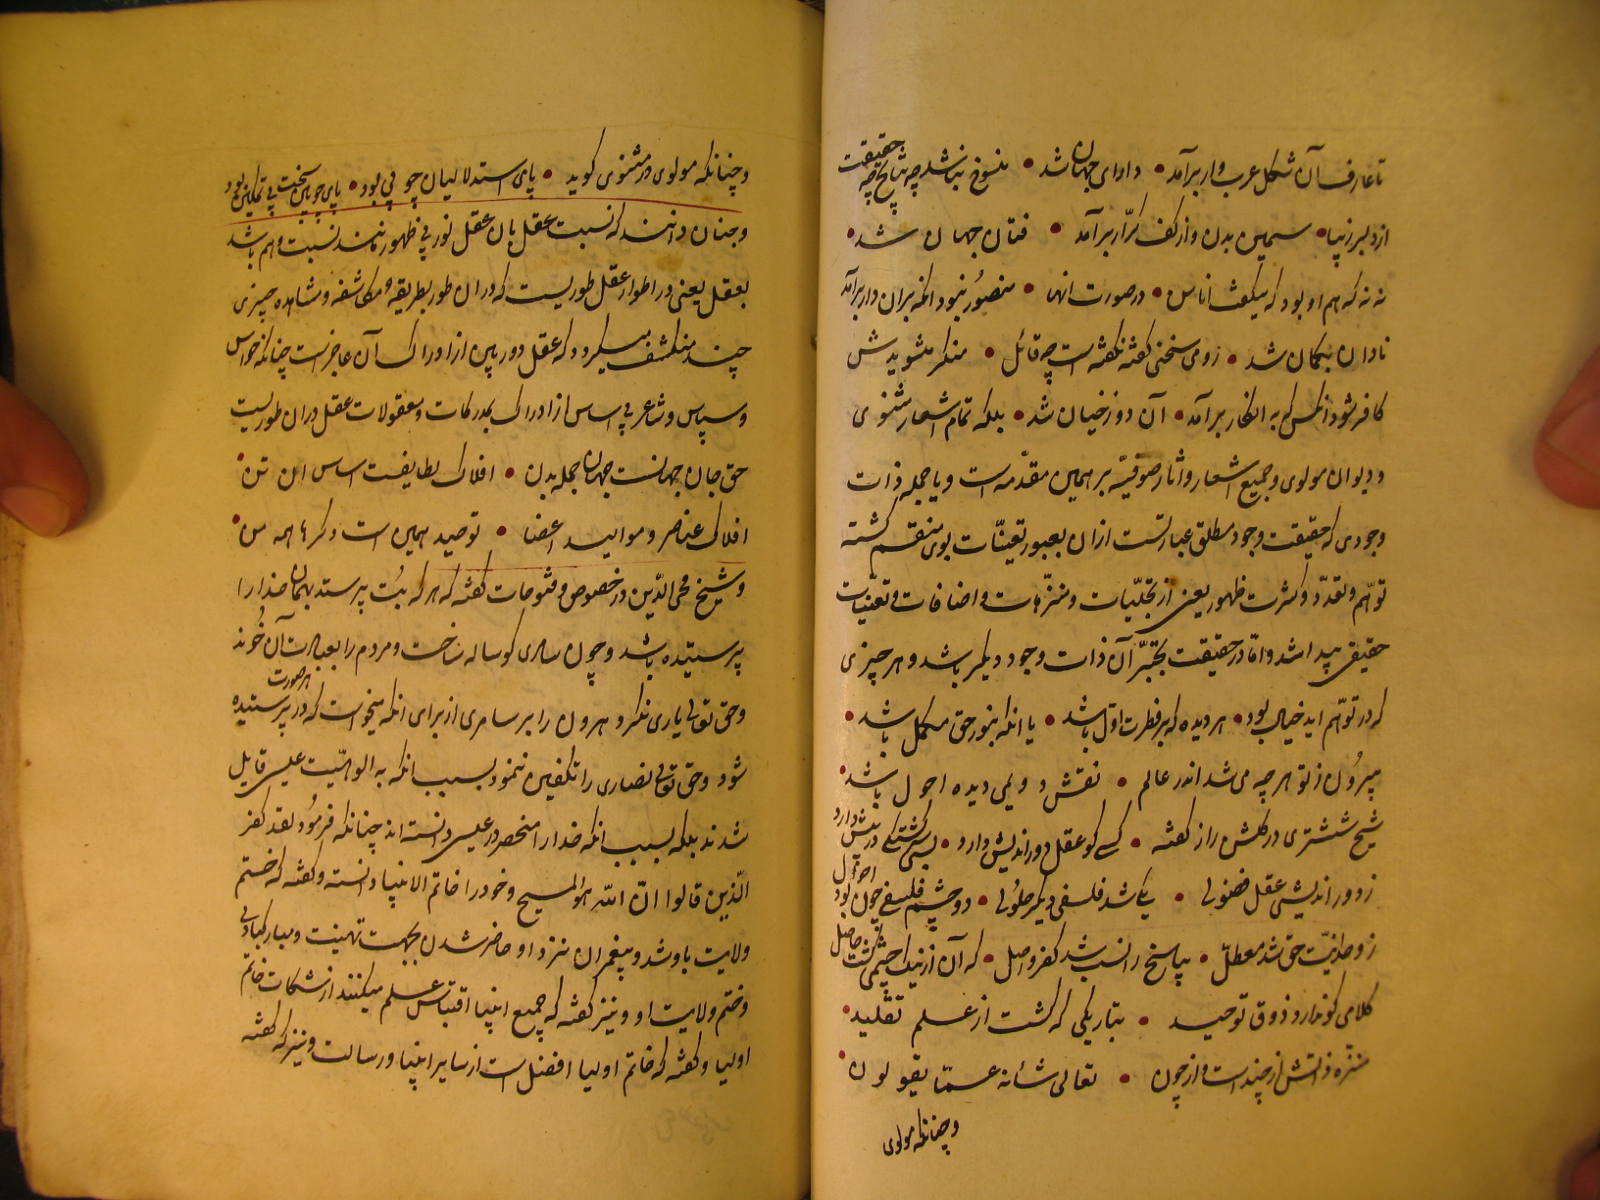 تا عارف آن شکل عرب وار برآمد • دارای جهان شد • منسوخ نباشد چه تناسخ چه حقیقت
از دلبر زیبا • سیمین بدن و از کف کرّار برآمد • فتان جهان شد •
نه نه که هم او بود که میگفت انا • در صورت • منصور نبود انکه بران دار برآمد
نادان بگمان شد • رومی سخنی کفته نکفته است چه قائل • منکر مشویدش
کافر شود انکس که به انکار برآمد • آن دوزخیان شد • بلکه تمام اشعار مثنوی
و دیوان مولوی و جمیع اشعار و اثار صوفیّه بر همین مقدّمه است و بالجمله ذات
وجودی که حقیقت وجود مطلق عبارتست ازان بعبور تعیّنات بوی منقسم کشته
توّهم و تعدّد و کثرت ظهور یعنی از تجلّیات و اضافات و تعینات
حقیقی پیدا شد و امّا در حقیقت آن ذات وجود دیگر باشد و هر چیزی
که در توّهم اید خیال بود • هر دیده که بر فطرت اوّل باشد • یا انکه بنور حق مکمل باشد •
بیرون از تو هر چه می شد اندر عالم • نقش دویمی دیده احول باشد •
شیخ شبستری در کلشن راز کفته • کسی کو عقل دور اندیش دارد • بسی سرکشتکی در پیش دارد
ز دور اندیشی عقل فضولی • یکی شد فلسفی دیکر حلولی • دو چشم فلسفی چون بود احول
ز وحدانیّت حق شد معطلّ • کفر و اصل • که آن از تیک چشمی کشت حاصل
کلامی کو ندارد ذوق توحید • بتاریکی که کشت از علم تقلید •
منزّه ذاتش از چند است و از چون • تعالی شانه عمّا یقولون •
و چنانکه مولوی
و چنانکه مولوی در مثنوی کوید • پای استدلالیان چوبی بود • پای چوبین سخت بی تمکین بود
و چنان دانند که نسبت عقل بان عقل نوری ظهور مانند نسبت وهم باشد
بعقل یعنی در اطوار عقل طوریست که دران طور بطریقه و مکاشفه و مشاهده چیزی
چند منکشف میکردد که عقل دوربین از ادراک آن عاجز است چنانکه حواس
و سپاس و شاعر بی اساس از ادراک مدرکات و معقولات عقل دران طوریست
حق جان جهانست جهان جمله بدن • افلاک لطایفست حواس این تن •
افلاک عناصر و موالید اعضا • توحید همین است دکرها همه من •
و شیخ محی الدّین در خصوص و فتوحات کفته که هر که بُت پرستد بهمان خدا را
پرستیده باشد و چون سامری کوساله ساخت و مردم را بعبادت آن خُوند
و حق تعالی یاری نکرد هرون را بر سامری از برای انکه میخواست که در هر صورت پرستیده
شود و حق تعالی نصاری را تکفیر ننمود بسبب انکه به الوهیّت عیسی قایل
شدند بلکه بسبب انکه خدا را منحصر در عیسی دانسته اند چنانکه فرمود لقد کفر
الّذین قالوا انّ الله هو المسیح و خود را خاتم الاولیا دانسته و کفته که ختم
ولایت باو شد و پیغمبران نزد او حاضر شدن بجهت تهنیت و مبارکبادی
و ختم ولایت او و نیز کفته که جمیع انبیا اقتباس علم میکنند از مشکات خاتم
اولیا و کفته که خاتم اولیا افضل است از سایر انبیا و رسالت و نیز که کفته